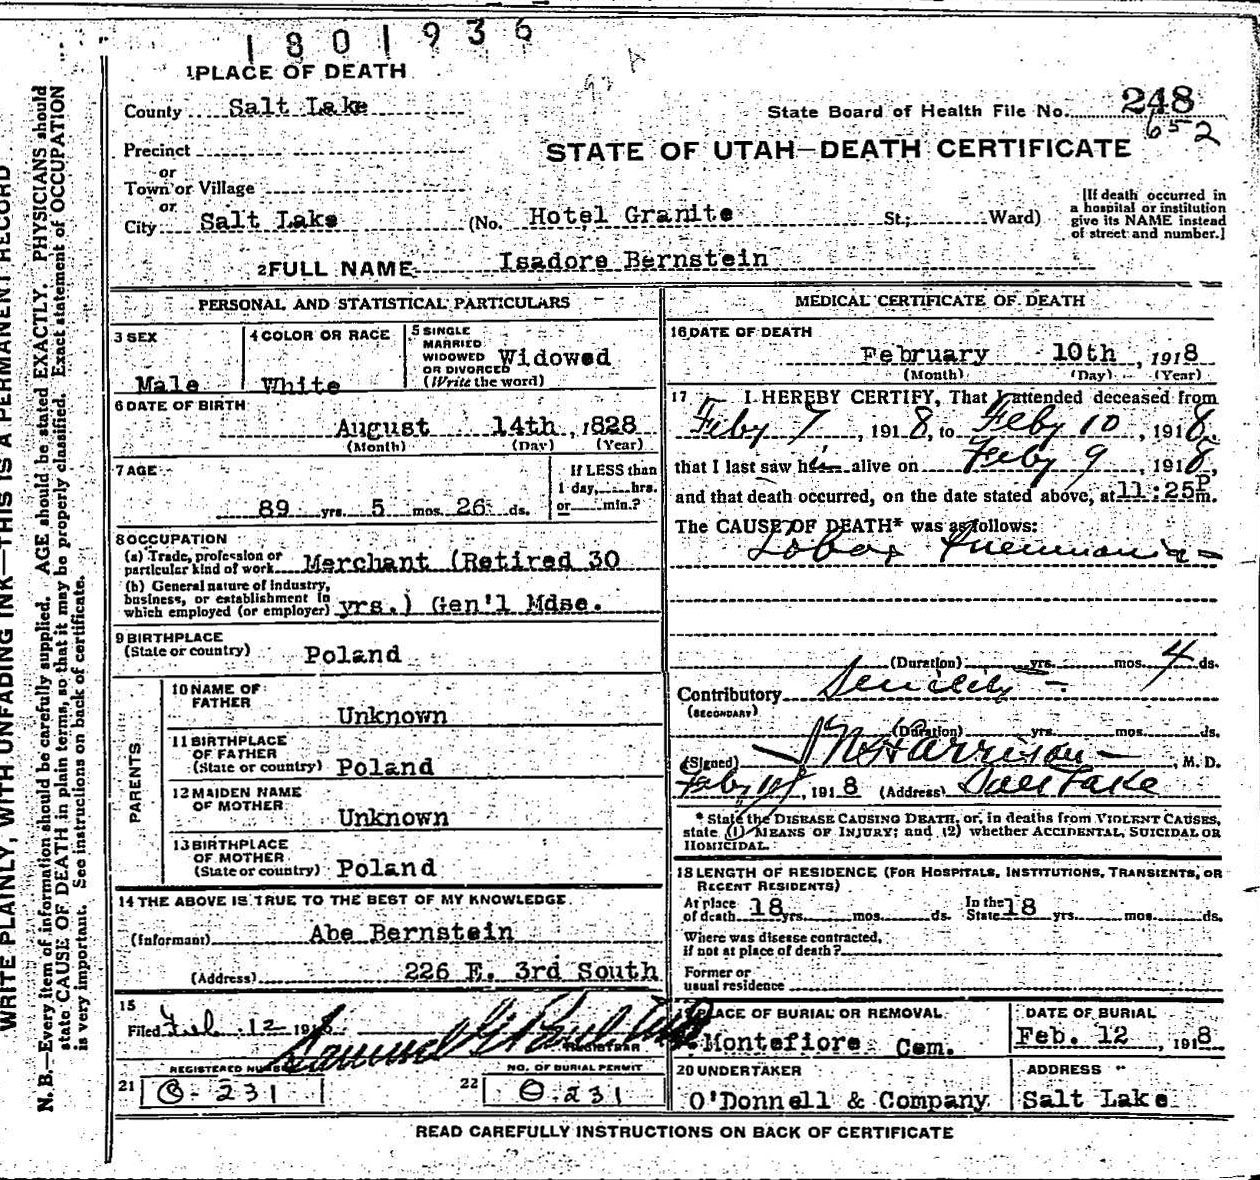 1801936
1 PLACE OF DEATH
County Salt Lake
State Board of Health File No. 248
652
Precinct
STATE OF UTAH—DEATH CERTIFICATE
or
Town or Village
or
City Salt Lake (No. Hotel Granite St.; Ward)
[If death occurred in
a hospital or institution
give its NAME instead
of street and number.]
2 FULL NAME Isadore Bernstein
PERSONAL AND STATISTICAL PARTICULARS
3 SEX
Male
4 COLOR OR RACE
White
5 SINGLE
MARRIED
WIDOWED
OR DIVORCED
(Write the word)
Widowed
6 DATE OF BIRTH
August 14th, 1828
(Month) (Day) (Year)
7 AGE
89 yrs. 5 mos. 26 ds.
If LESS than
1 day, hrs.
or min.?
8 OCCUPATION
(a) Trade, profession or
particular kind of work Merchant (Retired 30
(b) General nature of industry,
business, or establishment in
which employed (or employer) yrs.) Gen'l Mdse.
9 BIRTHPLACE
(State or country) Poland
PARENTS
10 NAME OF
FATHER
Unknown
11 BIRTHPLACE
OF FATHER
(State or country) Poland
12 MAIDEN NAME
OF MOTHER
Unknown
13 BIRTHPLACE
OF MOTHER
(State or country) Poland
14 THE ABOVE IS TRUE TO THE BEST OF MY KNOWLEDGE
(Informant) Abe Bernstein
(Address) 226 E. 3rd South
15
Filed Feb. 12 191
Samuel G.
REGISTRAR
REGISTERED NUMBER
21 231
NO. OF BURIAL PERMIT
22 231
MEDICAL CERTIFICATE OF DEATH
16 DATE OF DEATH
February 10th, 1918
(Month) (Day) (Year)
17 I HEREBY CERTIFY, That I attended deceased from
Feby 7, 1918, to Feby 10, 1918,
that I last saw him alive on Feby 9, 1918,
and that death occurred, on the date stated above, at 11:25P m.
The CAUSE OF DEATH* was as follows:
Lobar Pneumonia
(Duration) yrs. mos. 4 ds.
Contributory Senility
(SECONDARY)
(Duration) yrs. mos. ds.
(Signed) Harrison, M. D.
Feby 1918 (Address) Salt Lake
* State the DISEASE CAUSING DEATH, or, in deaths from VIOLENT CAUSES,
state (1) MEANS OF INJURY; and (2) whether ACCIDENTAL, SUICIDAL OR
HOMICIDAL.
18 LENGTH OF RESIDENCE (FOR HOSPITALS, INSTITUTIONS, TRANSIENTS, OR
RECENT RESIDENTS)
At place
of death 18 yrs. mos. ds.
In the
State 18 yrs. mos. ds.
Where was disease contracted,
if not at place of death?
Former or
usual residence
PLACE OF BURIAL OR REMOVAL
Montefiore Cem.
DATE OF BURIAL
Feb. 12, 1918
20 UNDERTAKER
O'Donnell & Company
ADDRESS
Salt Lake
READ CAREFULLY INSTRUCTIONS ON BACK OF CERTIFICATE
WRITE PLAINLY, WITH UNFADING INK—THIS IS A PERMANENT RECORD
N. B.—Every item of information should be carefully supplied. AGE should be stated EXACTLY. PHYSICIANS should
state CAUSE OF DEATH in plain terms, so that it may be properly classified. Exact statement of OCCUPATION
is very important. See instructions on back of certificate.